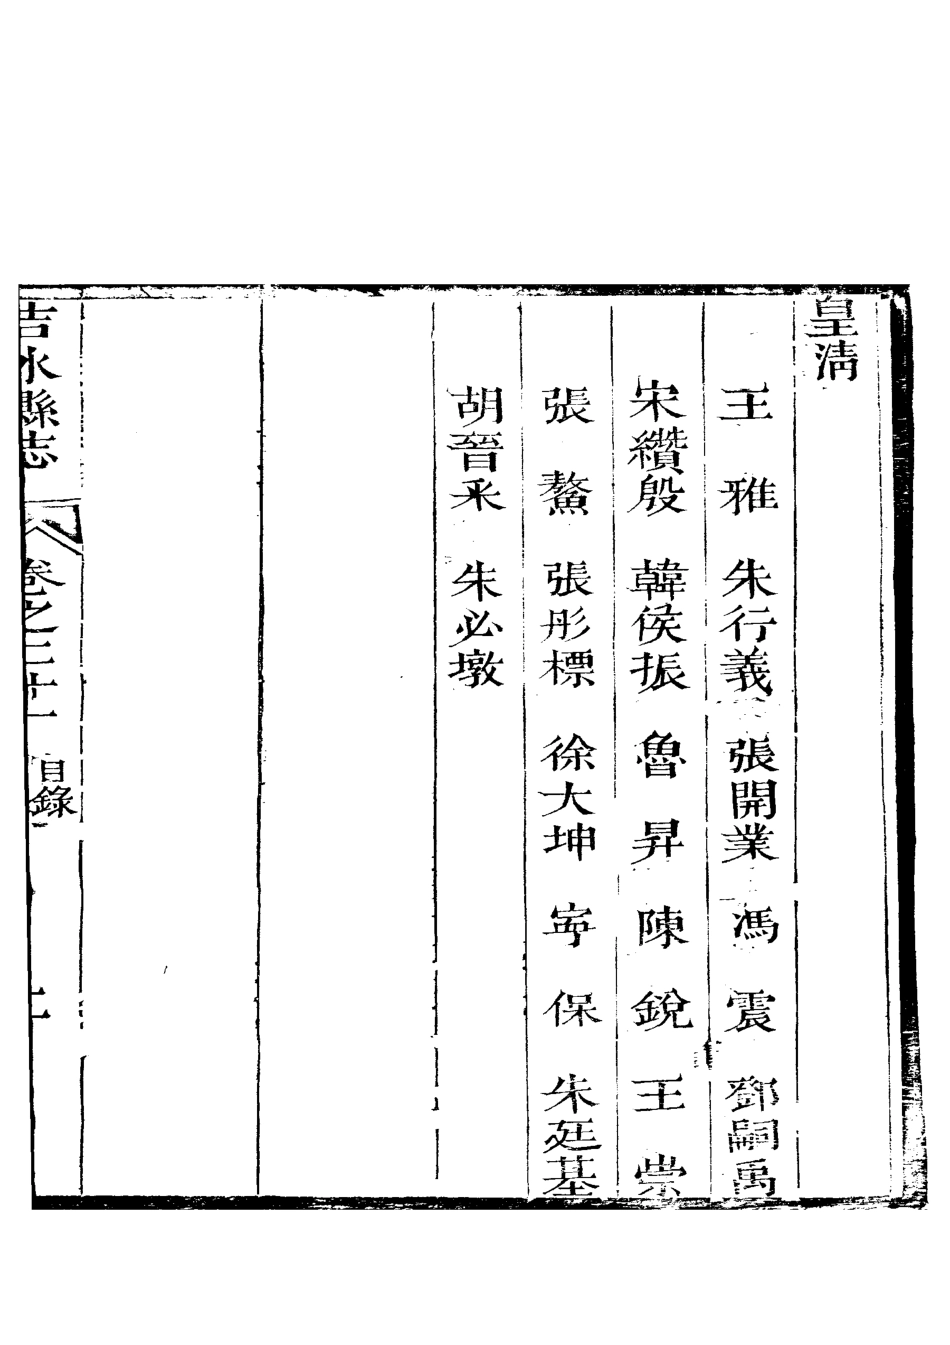 皇清
王　雅　朱行義　張開業　馮　震　鄧嗣禹
宋纘殷　韓侯振　魯　昇　陳　銳　王　崇
張　鰲　張彤標　徐大坤　寗　保　朱廷基
胡晉釆　朱必墩
吉水縣志　卷之三十一　目錄　二